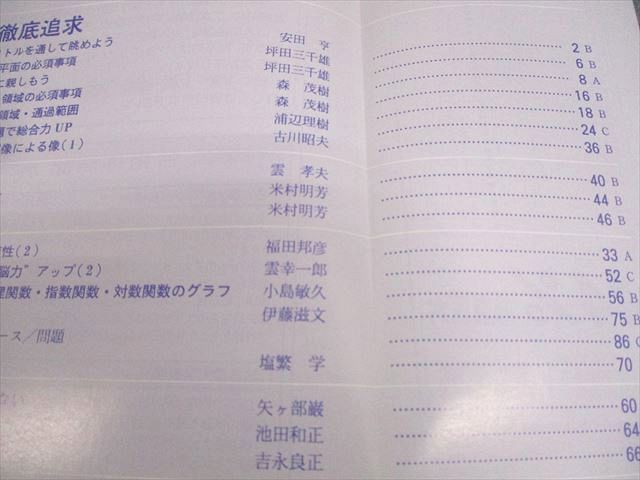 徹底追求
トルを通して眺めよう 安田 亨 2 B
平面の必須事項 坪田三千雄 6 B
に親しもう 坪田三千雄 8 A
領域の必須事項 森 茂樹 16 B
領域・通過範囲 森 茂樹 18 B
で総合力 UP 浦辺理樹 24 C
像による像(1) 古川昭夫 36 B
雲 孝夫 40 B
米村明芳 44 B
米村明芳 46 B
性(2) 福田邦彦 33 A
脳力”アップ(2) 雲幸一郎 52 C
関数・指数関数・対数関数のグラフ 小島敏久 56 B
伊藤滋文 75 B
ース/問題 86 C
塩繁 学 70
矢ヶ部巌 60
池田和正 64
吉永良正 66